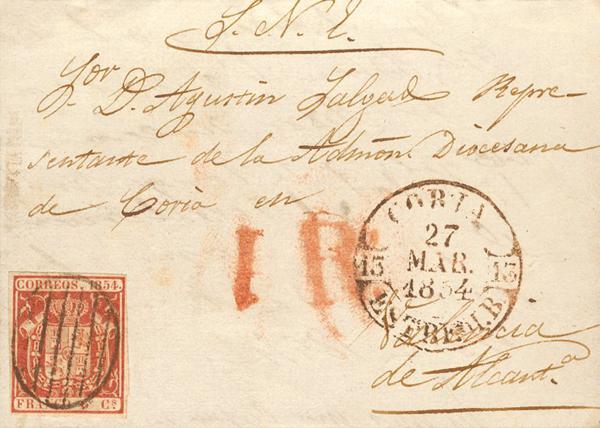 S. N. I.
Sor
D. Agustin Salgad Repre-
sentante de la Admōn. Diocesana
de Coria en
1 R
CORIA
27
MAR.
1854
15 15
ESTREM.B
Valencia
de Alcant.a
CORREOS. 1854.
FRANCO 6 Cs